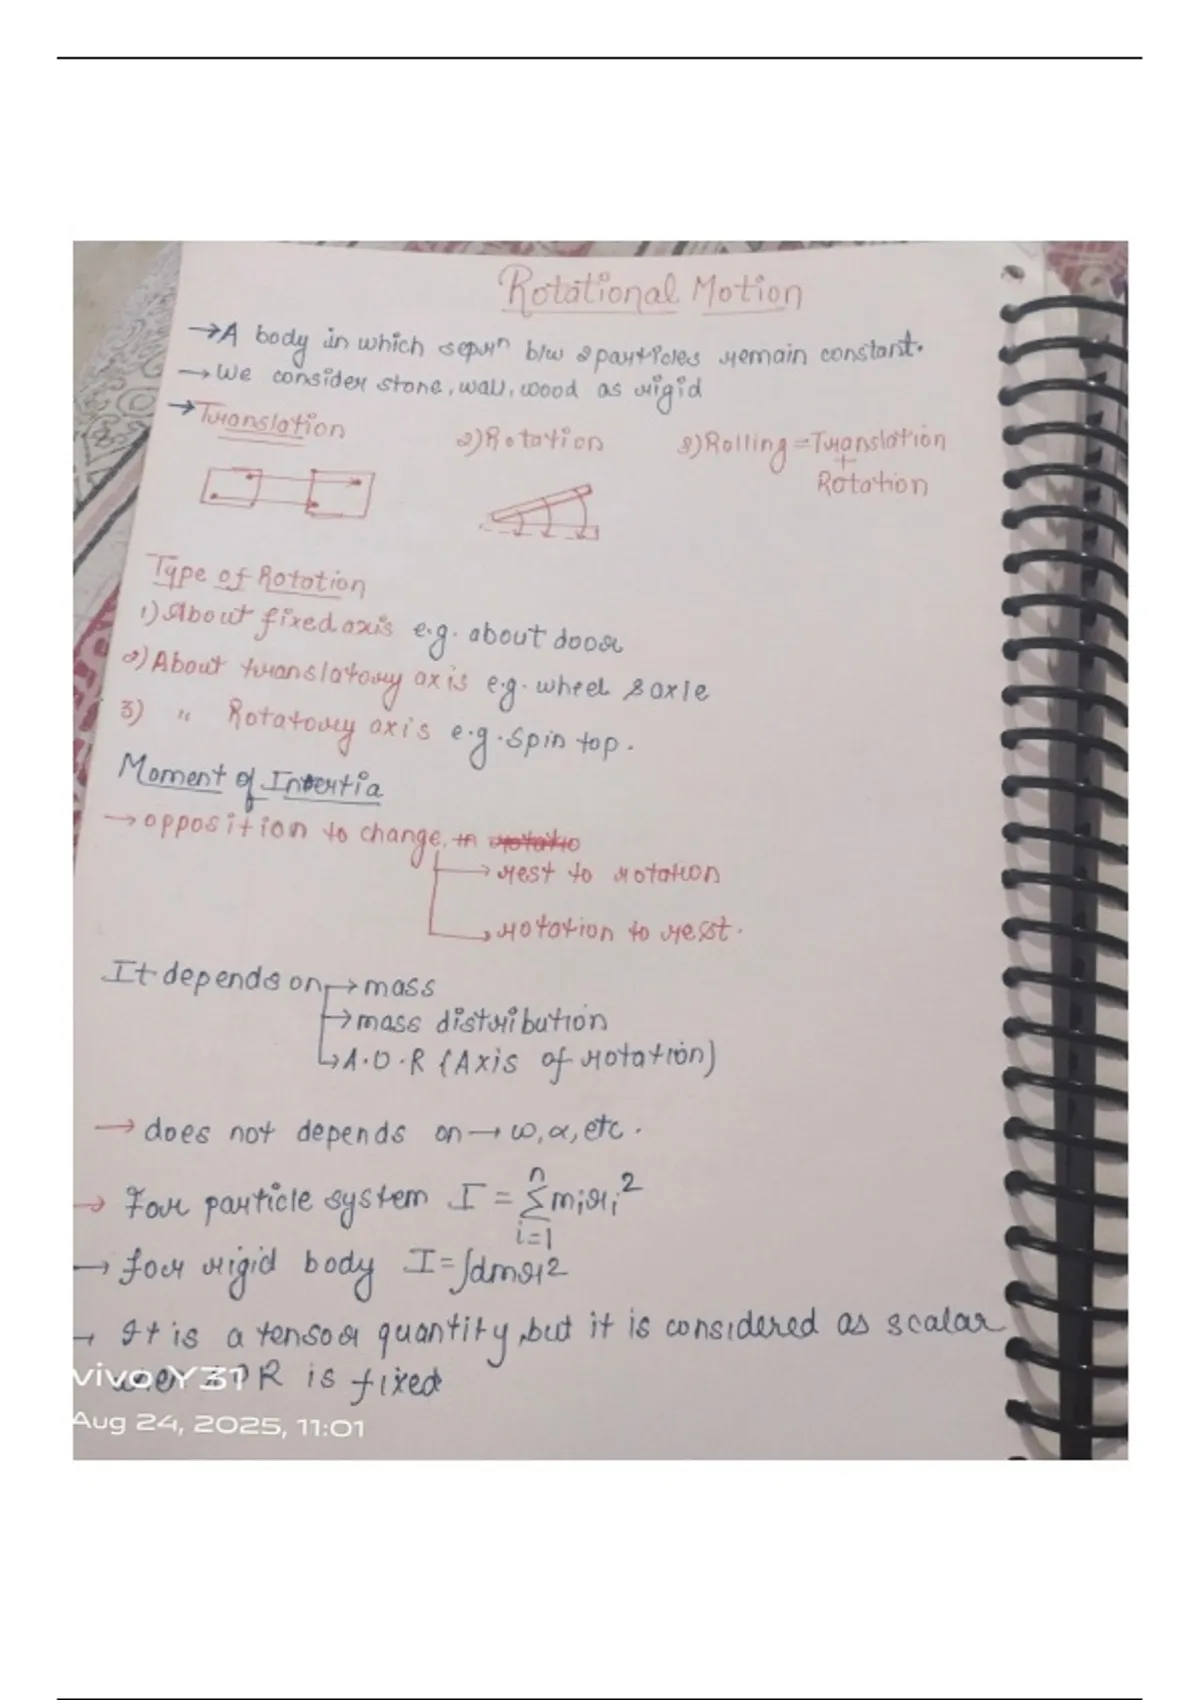 Rotational Motion
→A body in whichseprn b/w 2particles remain constant.
→We consider stone, wall, wood as rigid
→Translation 2)Rotation 3)Rolling=Translation
+
Rotation
Type of Rotation
1) About fixed axis e.g. about door
2) About translatory axis e.g. wheel & axle
3) " Rotatory axis e.g. spin top.
Moment of Inertia
→ opposition to change, in rotatio
→ rest to rotation
→ rotation to rest.
It depends on → mass
→ mass distribution
→ A.O.R (Axis of rotation)
→ does not depends on → ω, α, etc.
→ For particle system I = n∑i=1 miri2
→ for rigid body I = ∫dmr2
→ It is a tensor quantity, but it is considered as scalar
when AOR is fixed
vivo Y31
Aug 24, 2025, 11:01